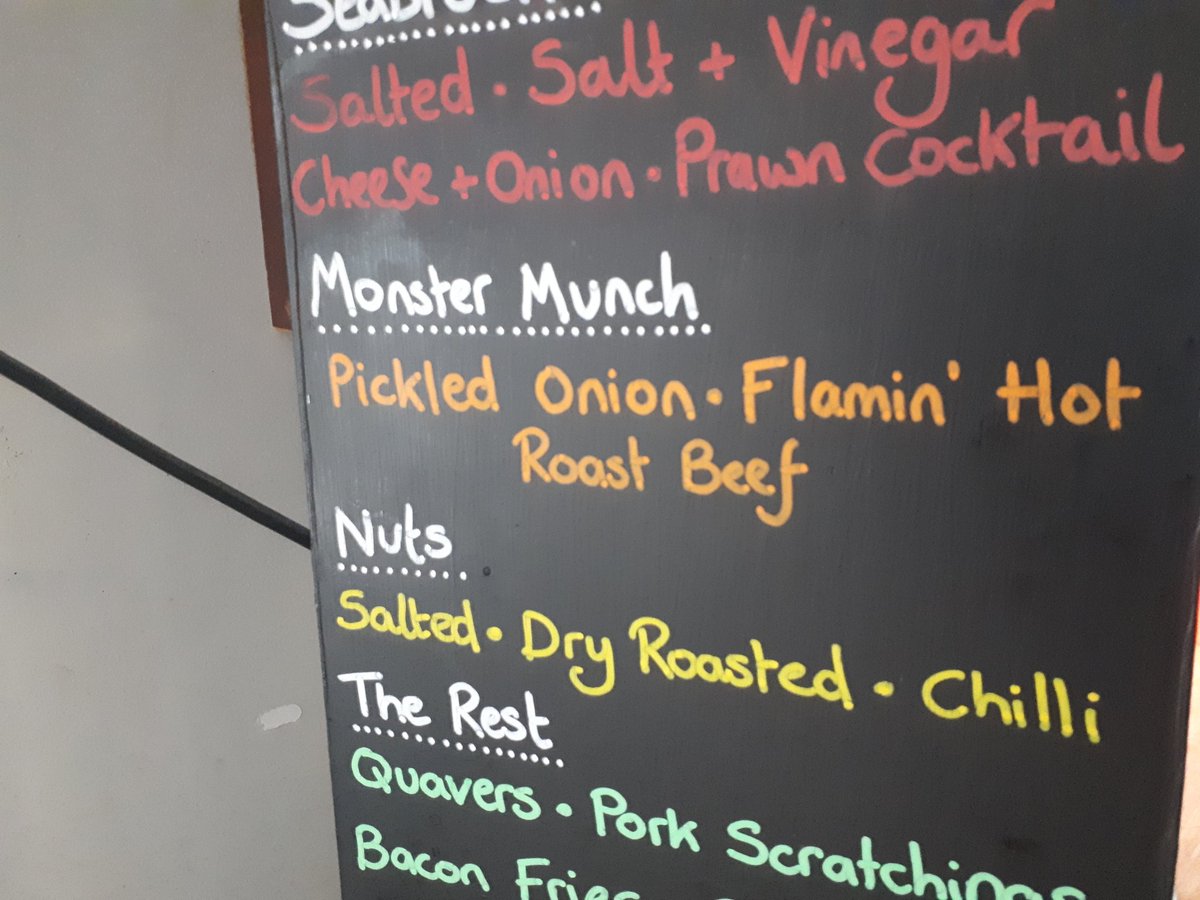 Salted · Salt + Vinegar
Cheese + Onion · Prawn Cocktail
Monster Munch
Pickled Onion · Flamin' Hot
Roast Beef
Nuts
Salted · Dry Roasted · Chilli
The Rest
Quavers · Pork Scratchings
Bacon Fries